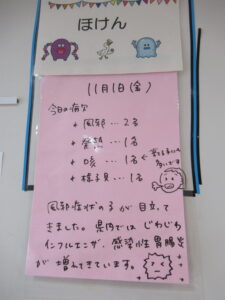 ほけん
11月1日(金)
今日の病欠
+ 風邪…2名
+ 発熱…1名
+ 咳…1名
+ 様子見…1名
風邪症状の子が目立って
きました。県内では じわじわ
インフルエンザ、感染性胃腸炎
が増えてきています。